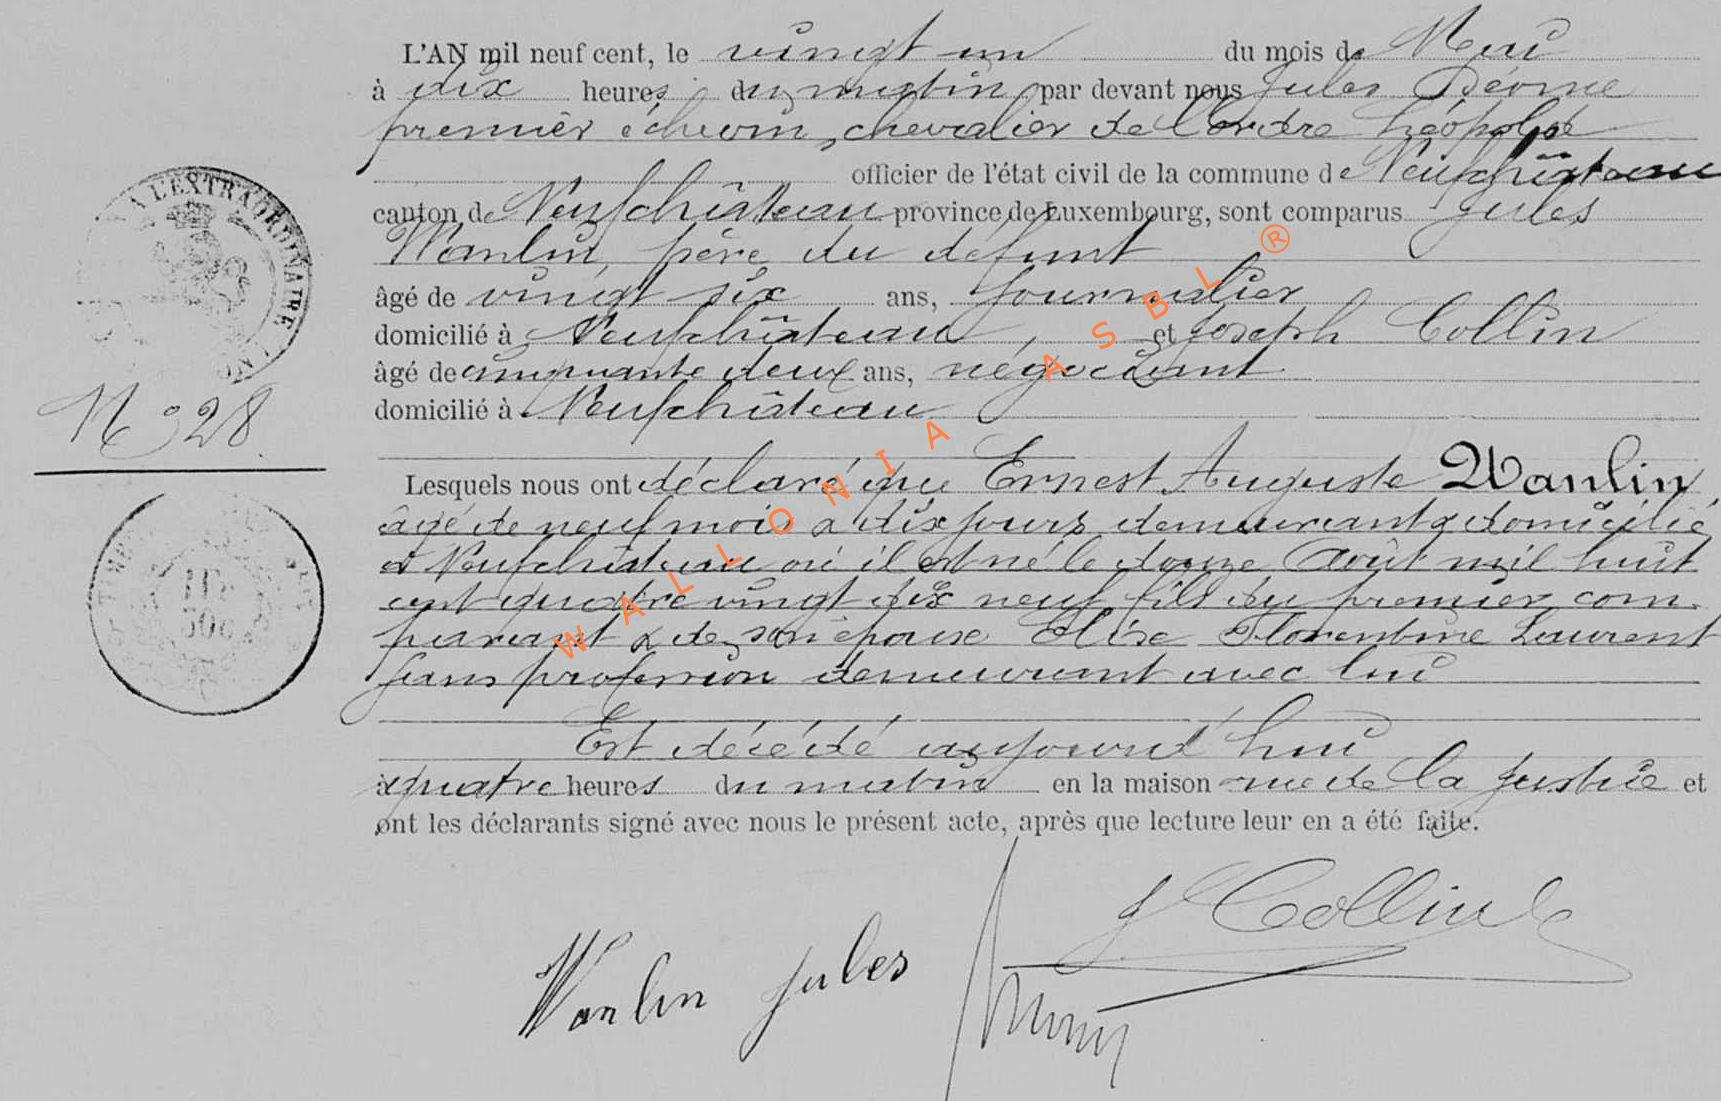 L'AN mil neuf cent, le vingt un du mois de Mai
à dix heures du matin par devant nous Jules
premier échevin, chevalier de l'ordre Léopold
officier de l'état civil de la commune de Neufchâteau
canton de Neufchâteau province de Luxembourg, sont comparus Jules
Wanlin, père du défunt
âgé de vingt six ans, journalier
domicilié à Neufchâteau, et Joseph Collin
âgé de cinquante deux ans, négociant
domicilié à Neufchâteau
N° 28
Lesquels nous ont déclaré que Ernest Auguste Wanlin,
âgé de neuf mois & dix jours demeurant & domicilié
à Neufchâteau où il est né le douze Août mil huit
cent quatre vingt dix neuf fils du premier com-
parant & de son épouse Elise Florentine Laurent
sans profession demeurant avec lui
Est décédé aujourd'hui
à quatre heures du matin en la maison rue de la Justice et
ont les déclarants signé avec nous le présent acte, après que lecture leur en a été faite.
J Collin
Wanlin Jules
WALLONIA ASBL ®
A L'EXTRAORDINAIRE